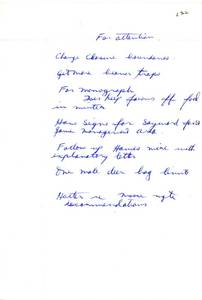 122
For attention
Change Closure boundaries
Get more beaver traps
For monograph
Does help fawns off feed
in winter
Have signs for Sayward
Game Management Area
Follow up Hames mine with
explanatory letter
One male deer bag limit
Hatter re moose
recommendations